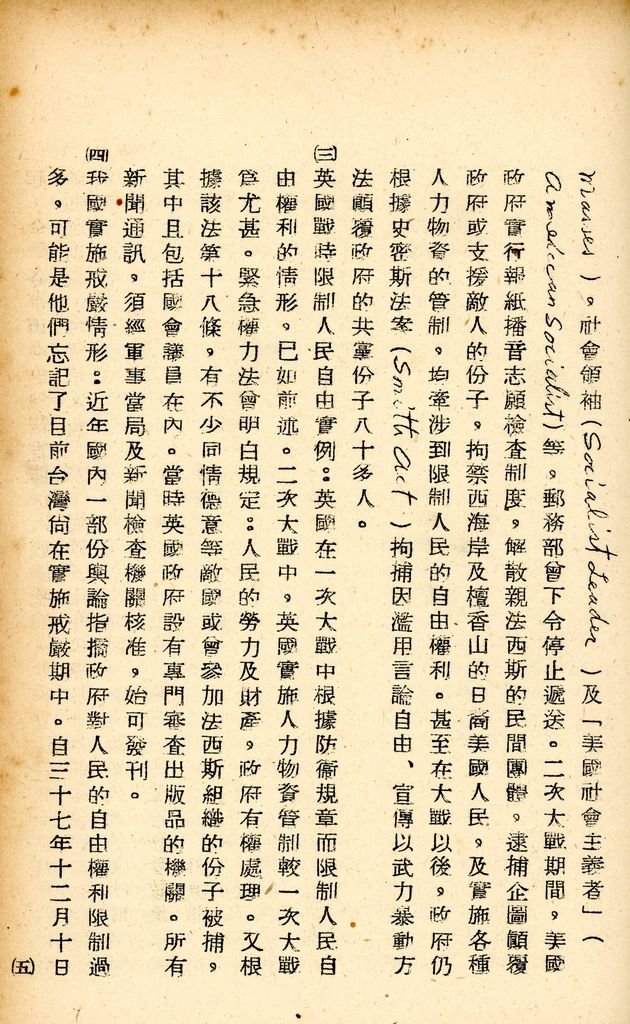 Masses）。社會領袖（Socialist Leader）及「美國社會主義者」（
American Socialist）等。郵務部曾下令停止遞送。二次大戰期間，美國
政府實行報紙播音志願檢查制度，解散親法西斯的民間團體，逮捕企圖顛覆
政府或支援敵人的份子，拘禁西海岸及檀香山的日裔美國人民，及實施各種
人力物資的管制，均牽涉到限制人民的自由權利。甚至在大戰以後，政府仍
根據史密斯法案（Smith Act）拘捕因濫用言論自由、宣傳以武力暴動方
法顛覆政府的共黨份子八十多人。
㈢英國戰時限制人民自由實例：英國在一次大戰中根據防衛規章而限制人民自
由權利的情形，已如前述。二次大戰中，英國實施人力物資管制較一次大戰
為尤甚。緊急權力法曾明白規定：人民的勞力及財產，政府有權處理。又根
據該法第十八條，有不少同情德意等敵國或曾參加法西斯組織的份子被捕，
其中且包括國會議員在內。當時英國政府設有專門審查出版品的機關。所有
新聞通訊，須經軍事當局及新聞檢查機關核准，始可發刊。
㈣我國實施戒嚴情形：近年國內一部份輿論指摘政府對人民的自由權利限制過
多，可能是他們忘記了目前台灣尙在實施戒嚴期中。自三十七年十二月十日
㈤